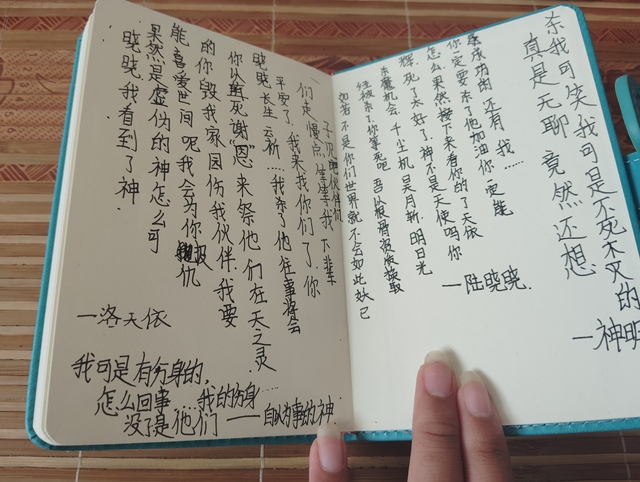 晓晓我看到了神,
果然是虚伪的神怎么可
能喜爱世间呢我会为你报仇
的你毁我家园伤我伙伴我要
你以死谢“恩”来祭他们在天之灵
晓晓长生云祈……我杀了他往事将会
平安了,我来找你们了,你
们走慢点等等我下辈
伙伴们
—洛天依
我可是有分身的,
怎么回事……我的分身
没了是他们——自以为事的神
若不是你们世界就不会如此妖已
被杀了你等死吧 吾以根骨换取
来魔机会 千尘机 吴月新 明日光
辉 死了太好了 神不是天使吗你
怎么果然 接下来看你的了天依
你一定要杀了他加油你一定能
是成功的 还有 我……
—陆晓晓.
真是无聊 竟然还想
杀我可笑我可是不死不灭的
—神明